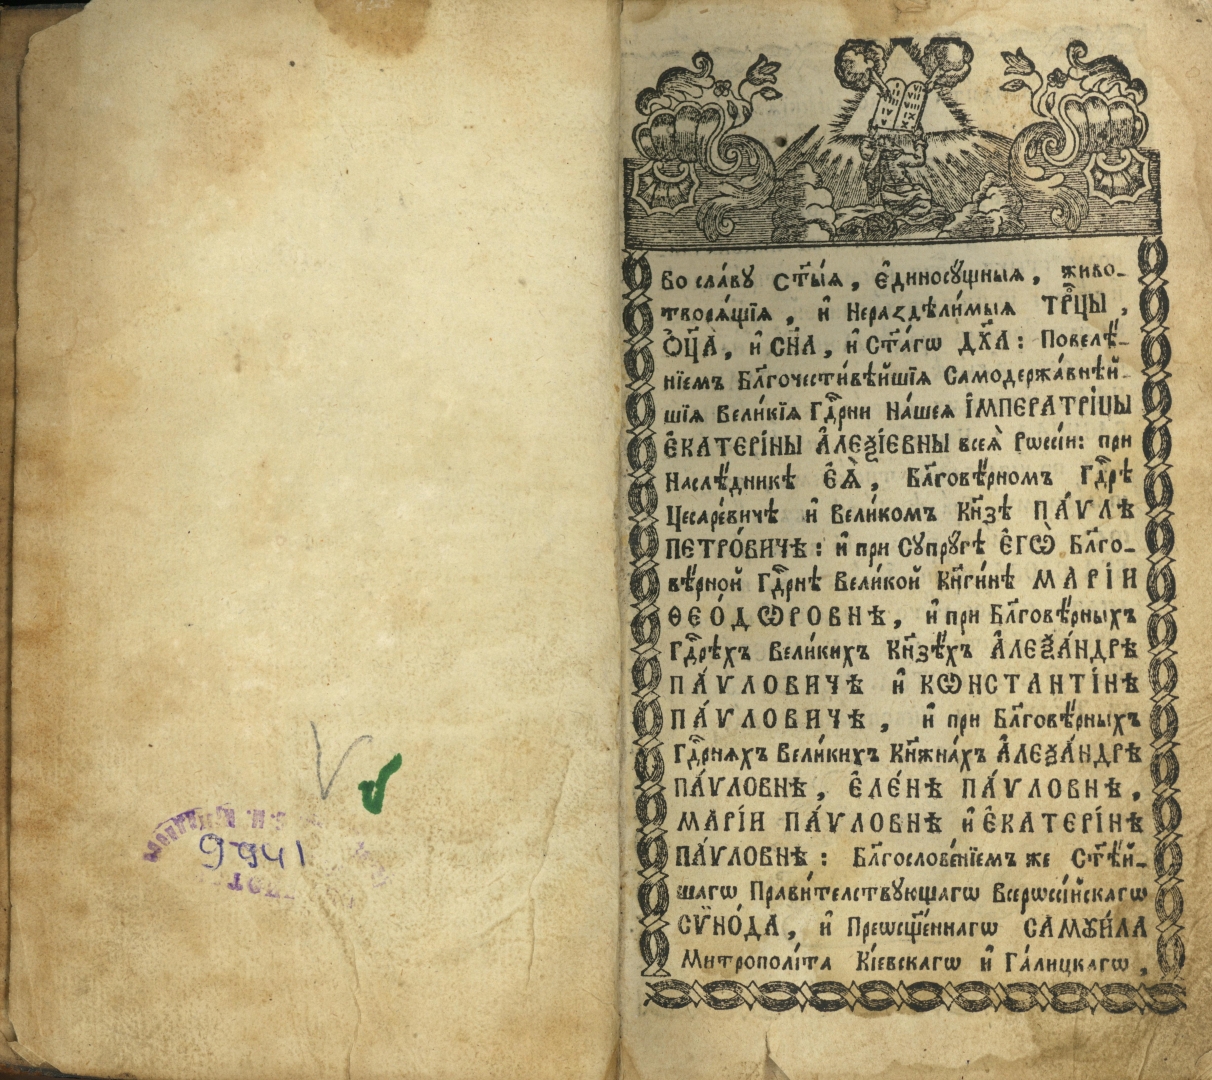 9941
I VI
II VII
III VIII
IV IX
V X
Во сла́ву Ст҃ы́ѧ, є҆диносꙋ́щныѧ, живо-
творѧ́щїѧ, и҆ Нераздѣли́мыѧ ТРЦ҃Ы,
Ѻ҆Ц҃А̀, и҆ СН҃А, и҆ Ст҃а́гѡ ДХ҃А: Повелѣ́-
нїемъ Бл҃гочести́вѣйшїѧ Самодержа́внѣй-
шїѧ Вели́кїѧ Гдⷭ҇рни На́шеѧ І҆МПЕРАТРІ́ЦЫ
Є҆КАТЕРІ́НЫ А҆ЛЕѮІ́ЕВНЫ всеѧ̀ Рѡссі́и: при
Наслѣ́дникѣ Є҆Ѧ̀, Бл҃говѣ́рномъ Гдⷭ҇рѣ
Цесаре́вичѣ и҆ Вели́комъ Кн҃зѣ ПА́ѴЛѢ
ПЕТРО́ВИЧѢ: и҆ при Сꙋпрꙋ́гѣ Є҆ГѠ̀ Бл҃го-
вѣ́рной Гдⷭ҇рнѣ Вели́кой Кн҃ги́нѣ МАРІ́И
ѲЕО́ДѠРОВНѢ, и҆ при Бл҃говѣ́рныхъ
Гдⷭ҇рѣхъ Вели́кихъ Кн҃зѣ́хъ А҆ЛЕѮА́НДРѢ
ПА́ѴЛОВИЧѢ и҆ КѠНСТАНТІ́НѢ
ПА́ѴЛОВИЧѢ, и҆ при Бл҃говѣ́рныхъ
Гдⷭ҇рнѧхъ Вели́кихъ Кн҃жна́хъ А҆ЛЕѮА́НДРѢ
ПА́ѴЛОВНѢ, Є҆ЛЕ́НѢ ПА́ѴЛОВНѢ,
МАРІ́И ПА́ѴЛОВНѢ и҆ Є҆КАТЕРІ́НѢ
ПА́ѴЛОВНѢ: Бл҃гослове́нїемъ же Ст҃ѣ́й-
шагѡ Прави́телствꙋющагѡ Всерѡссі́йскагѡ
СѴ҆НО́ДА, и҆ Преѡсщ҃е́ннагѡ САМꙊИ́ЛА
Митрополі́та Кі́евскагѡ и҆ Га́лицкагѡ,